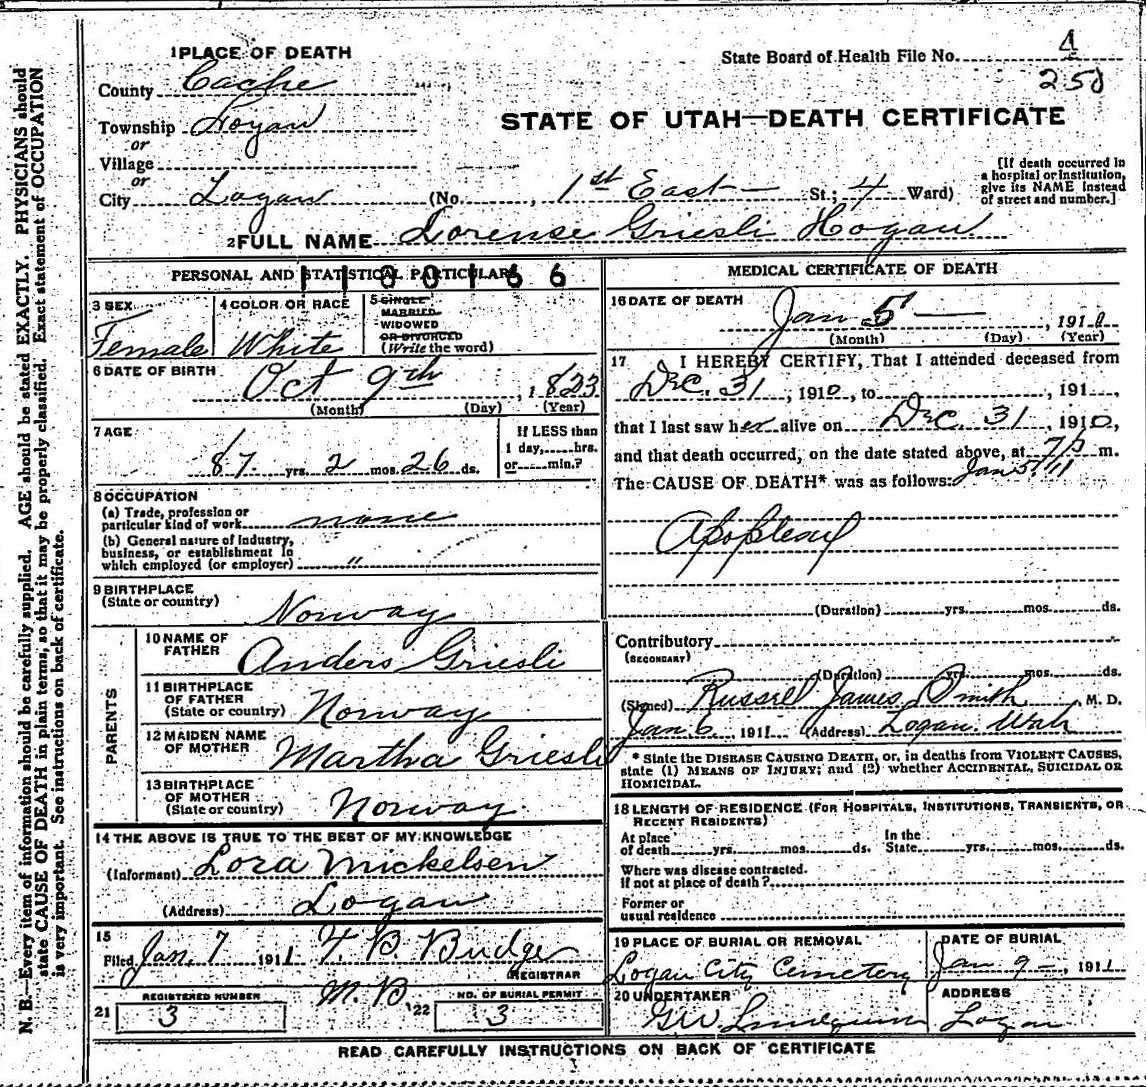 N. B.—Every item of information should be carefully supplied. AGE should be stated EXACTLY. PHYSICIANS should
state CAUSE OF DEATH in plain terms, so that it may be properly classified. Exact statement of OCCUPATION
is very important. See instructions on back of certificate.
1 PLACE OF DEATH
County Cache
Township Logan
or
Village
or
City Logan
State Board of Health File No. 4
250
STATE OF UTAH—DEATH CERTIFICATE
(No. , 1st East St.; 4 Ward)
[If death occurred in
a hospital or institution,
give its NAME instead
of street and number.]
2 FULL NAME Lorense Griesli Hogan
PERSONAL AND STATISTICAL PARTICULARS
3 SEX
Female
4 COLOR OR RACE
White
5 SINGLE
MARRIED
WIDOWED
OR DIVORCED
(Write the word)
6 DATE OF BIRTH
Oct 9th , 1823
(Month) (Day) (Year)
7 AGE
87 yrs. 2 mos. 26 ds.
If LESS than
1 day,......hrs.
or......min.?
8 OCCUPATION
(a) Trade, profession or
particular kind of work none
(b) General nature of industry,
business, or establishment in
which employed (or employer) "
9 BIRTHPLACE
(State or country)
Norway
PARENTS
10 NAME OF
FATHER
Anders Griesli
11 BIRTHPLACE
OF FATHER
(State or country)
Norway
12 MAIDEN NAME
OF MOTHER
Martha Griesli
13 BIRTHPLACE
OF MOTHER
(State or country)
Norway
14 THE ABOVE IS TRUE TO THE BEST OF MY KNOWLEDGE
(Informant) Lora Mickelsen
(Address) Logan
15
Filed Jan. 7 1911 T. B. Budge
REGISTRAR
M. B
REGISTERED NUMBER
21 3
NO. OF BURIAL PERMIT
22 3
MEDICAL CERTIFICATE OF DEATH
16 DATE OF DEATH
Jan 5 , 191
(Month) (Day) (Year)
17 I HEREBY CERTIFY, That I attended deceased from
Dec. 31 , 1910, to , 191 ,
that I last saw her alive on Dec. 31 , 1910,
and that death occurred, on the date stated above, at m.
The CAUSE OF DEATH* was as follows: Jan 5/11
Apoplexy
(Duration) yrs. mos. ds.
Contributory
(SECONDARY)
(Duration) yrs. mos. ds.
(Signed) Russell James Smith , M. D.
Jan 6 , 1911 (Address) Logan Utah
* State the DISEASE CAUSING DEATH, or, in deaths from VIOLENT CAUSES,
state (1) MEANS OF INJURY; and (2) whether ACCIDENTAL, SUICIDAL OR
HOMICIDAL.
18 LENGTH OF RESIDENCE (FOR HOSPITALS, INSTITUTIONS, TRANSIENTS, OR
RECENT RESIDENTS)
At place
of death yrs. mos. ds.
In the
State yrs. mos. ds.
Where was disease contracted.
If not at place of death?
Former or
usual residence
19 PLACE OF BURIAL OR REMOVAL
Logan City Cemetery
DATE OF BURIAL
Jan 9 , 1911
20 UNDERTAKER
GW Lindquist
ADDRESS
Logan
READ CAREFULLY INSTRUCTIONS ON BACK OF CERTIFICATE